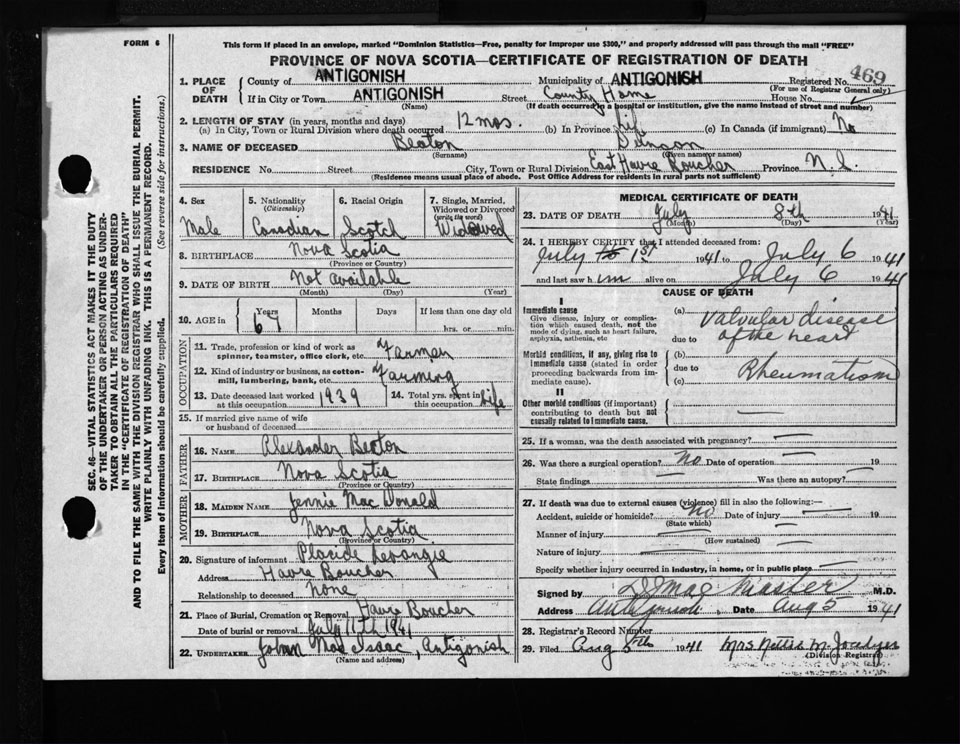 FORM 6
This form if placed in an envelope, marked "Dominion Statistics—Free, penalty for improper use $300," and properly addressed will pass through the mail "FREE"
PROVINCE OF NOVA SCOTIA—CERTIFICATE OF REGISTRATION OF DEATH
469
1. PLACE OF DEATH
County of ANTIGONISH Municipality of ANTIGONISH Registered No.
(For use of Registrar General only)
If in City or Town ANTIGONISH Street County Home House No.
(Name) (If death occurred in a hospital or institution, give the name instead of street and number)
2. LENGTH OF STAY (in years, months and days)
(a) In City, Town or Rural Division where death occurred 12 mos. (b) In Province life (c) In Canada (if immigrant) No
3. NAME OF DECEASED Beaton Duncan
(Surname) (Given name or names)
RESIDENCE No. Street City, Town or Rural Division East Havre Boucher Province N.S.
(Residence means usual place of abode. Post Office Address for residents in rural parts not sufficient)
4. Sex 5. Nationality (Citizenship) 6. Racial Origin 7. Single, Married, Widowed or Divorced (write the word)
Male Canadian Scotch Widowed
8. BIRTHPLACE Nova Scotia
(Province or Country)
9. DATE OF BIRTH Not available
(Month) (Day) (Year)
10. AGE in Years Months Days If less than one day old
67 hrs. or min.
OCCUPATION
11. Trade, profession or kind of work as spinner, teamster, office clerk, etc. Farmer
12. Kind of industry or business, as cotton-mill, lumbering, bank, etc. Farming
13. Date deceased last worked at this occupation 1939 14. Total yrs. spent in this occupation Life
15. If married give name of wife or husband of deceased
FATHER
16. NAME Alexander Beaton
17. BIRTHPLACE Nova Scotia
(Province or Country)
MOTHER
18. MAIDEN NAME Jennie Mac Donald
19. BIRTHPLACE Nova Scotia
(Province or Country)
20. Signature of informant Placide Levangie
Address Havre Boucher
Relationship to deceased none
21. Place of Burial, Cremation or Removal Havre Boucher
Date of burial or removal July 11th 1941
22. UNDERTAKER John MacIsaac, Antigonish
(Name and address)
MEDICAL CERTIFICATE OF DEATH
23. DATE OF DEATH July 8th 1941
(Month) (Day)
24. I HEREBY CERTIFY that I attended deceased from:
July to 1st 1941 to July 6 1941
and last saw him alive on July 6 1941
CAUSE OF DEATH
I
Immediate cause
Give disease, injury or complication which caused death, not the mode of dying, such as heart failure, asphyxia, asthenia, etc
(a) Valvular disease
due to of the heart
Morbid conditions, if any, giving rise to immediate cause (stated in order proceeding backwards from immediate cause).
(b)
due to Rheumatism
(c)
II
Other morbid conditions (if important) contributing to death but not causally related to immediate cause.
25. If a woman, was the death associated with pregnancy?
26. Was there a surgical operation? No Date of operation 19
State findings Was there an autopsy?
27. If death was due to external causes (violence) fill in also the following:—
Accident, suicide or homicide? No Date of injury 19
(State which)
Manner of injury
(How sustained)
Nature of injury
Specify whether injury occurred in industry, in home, or in public place
Signed by M.D.
Address Antigonish, Date Aug 5 1941
28. Registrar's Record Number
29. Filed Aug 5th 1941 Mrs
(Division Registrar)
SEC. 46—VITAL STATISTICS ACT MAKES IT THE DUTY
OF THE UNDERTAKER OR PERSON ACTING AS UNDER-
TAKER TO OBTAIN ALL THE PARTICULARS REQUIRED
IN THE "CERTIFICATE OF REGISTRATION OF DEATH"
AND TO FILE THE SAME WITH THE DIVISION REGISTRAR WHO SHALL ISSUE THE BURIAL PERMIT.
WRITE PLAINLY WITH UNFADING INK. THIS IS A PERMANENT RECORD.
Every item of information should be carefully supplied. (See reverse side for instructions.)